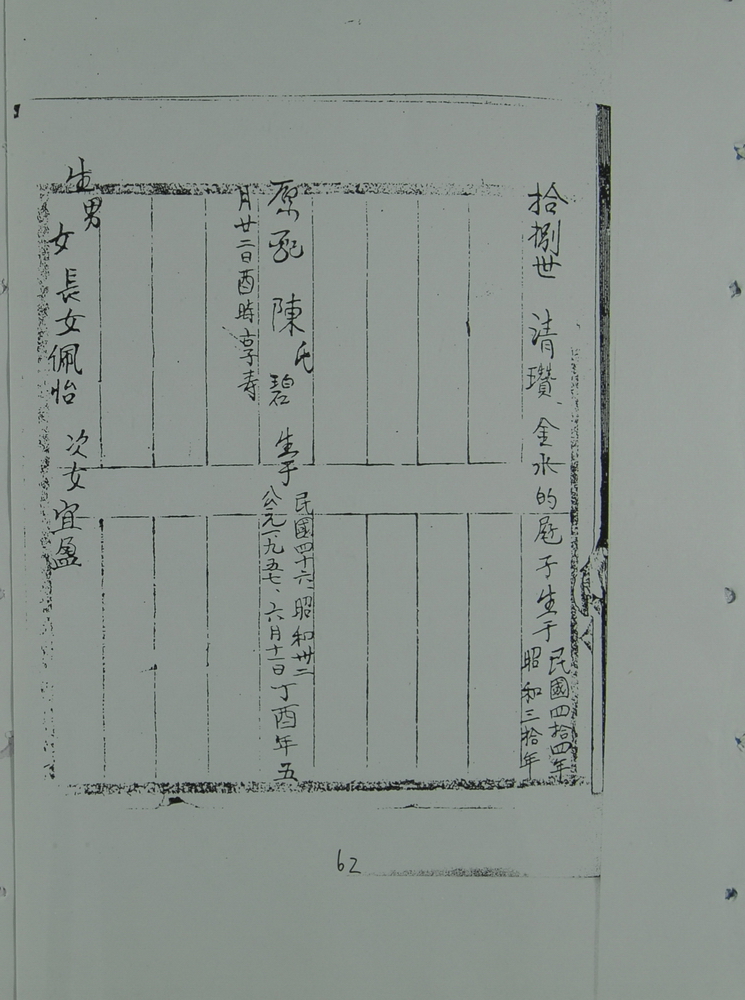 拾捌世 清瓚、金水的屘子生于民國四拾四年
昭和三拾年
原配 陳氏碧 生于民國四十六、昭和卅二
公元一九五七、六月十一日丁酉年五
月廿二日酉時 享壽
生男
女 長女佩怡 次女宜盈
62